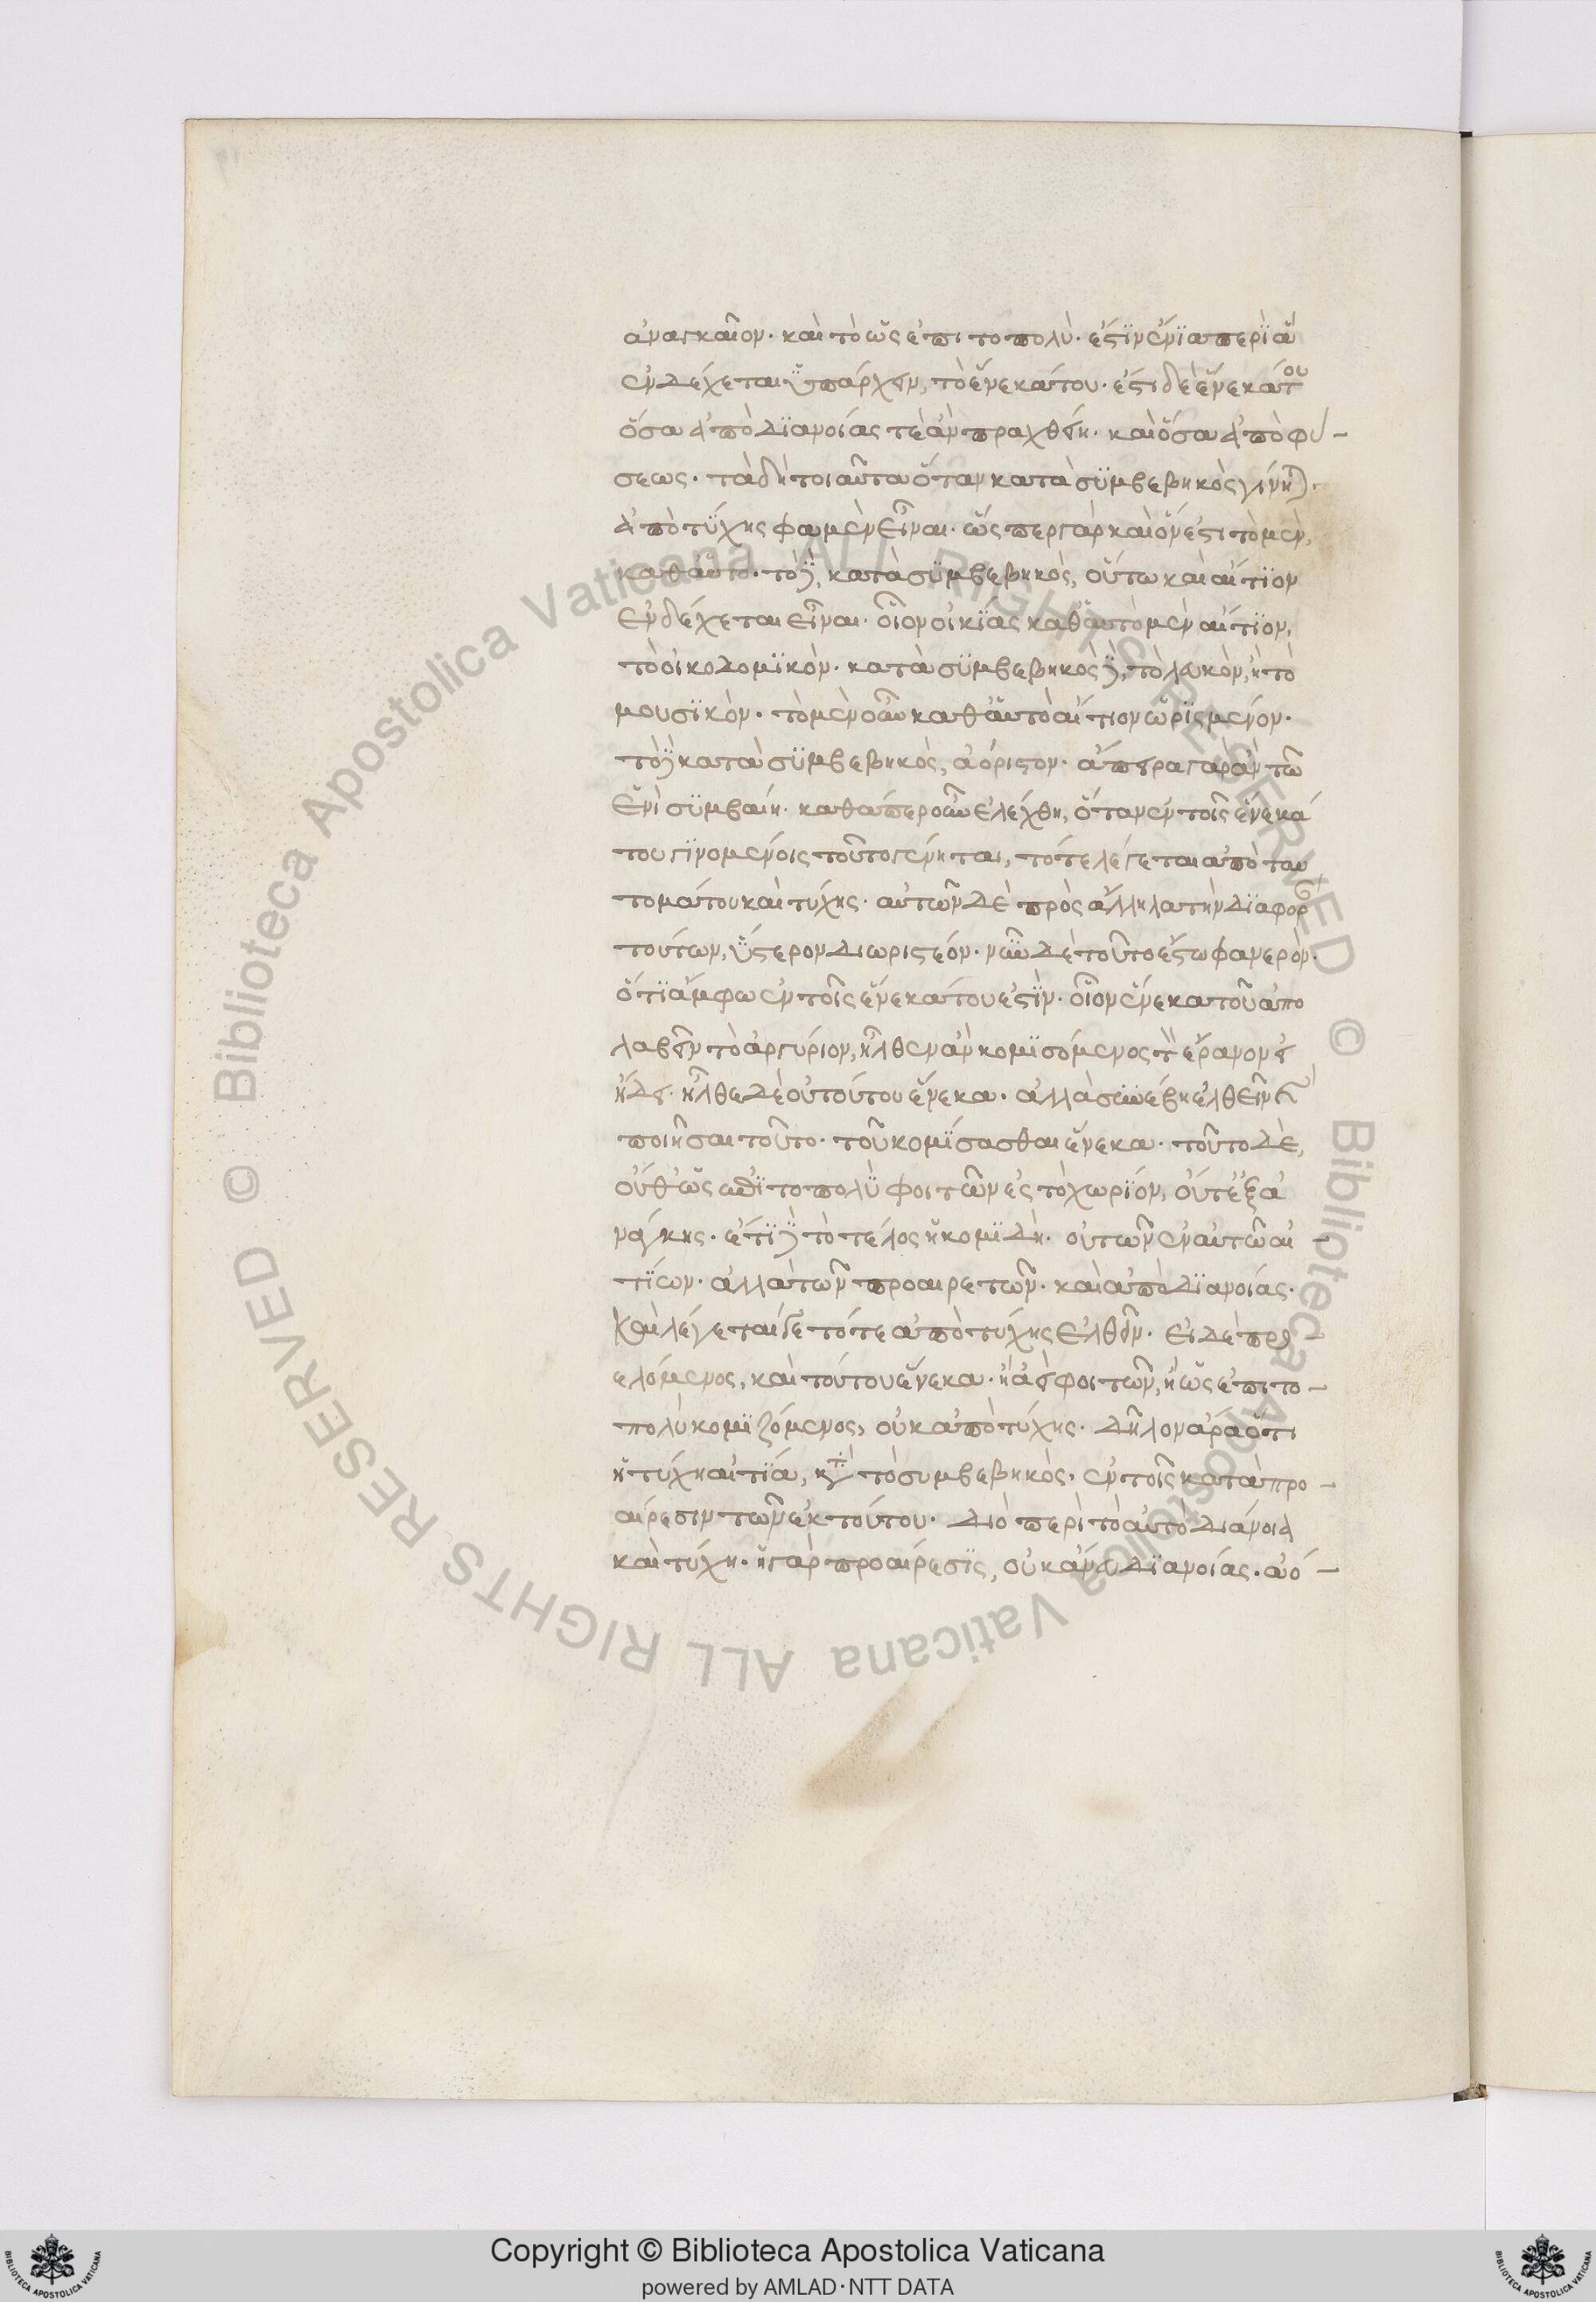 ἀναγκαῖον· καὶ τὸ ὡς ἐπι τοπολὺ· ἔστιν ἔνϊα περὶ ἃ
ἐνδέχεται ὑπάρχειν, τὸ ἕνεκά του· ἔστι δὲ ἕνεκά του
ὅσα ἀπὸ διανοίας τὲ ἂν πραχθείη· καὶ ὅσα ἀπὸ φύ–
σεως· τὰ δὴ τοιαῦτα ὅταν κατὰ συμβεβηκὸς γένηται·
ἀπὸ τύχης φαμὲν εἶναι· ὥσπερ γὰρ καὶ ὄν ἐστι τὸ μὲν,
καθ' αὑτό· τὸ δὲ, κατὰ συμβεβηκὸς, οὕτω καὶ αἴτϊον
ἐνδέχεται εἶναι· οἷον οἰκίας καθ' αὑτὸ μὲν αἴτϊον,
τὸ οἰκοδομϊκὸν· κατὰ συμβεβηκὸς δὲ, τὸ λευκὸν, ἢ τὸ
μουσϊκὸν· τὸ μὲν οὖν καθ' αὑτὸ αἴτιον ὡρϊσμένον·
τὸ δὲ κατὰ συμβεβηκὸς, ἀόριστον· ἄπειρα γὰρ ἂν τῶ
ἑνὶ συμβαίη· καθάπερ οὖν ἐλέχθη, ὅταν ἐν τοῖς ἕνεκά
του γϊνομένοις τοῦτο γένηται, τότε λέγεται ἀπὸ ταυ
τομάτου καὶ τύχης· αὐτῶν δὲ πρὸς ἄλληλα τὴν διαφορὰν
τούτων, ὕστερον διωριστέον· νῦν δὲ τοῦτο ἔστω φανερὸν·
ὅτϊ ἄμφω ἐν τοῖς ἕνεκά του ἐστὶν· οἷον ἕνεκα τοῦ ἀπο
λαβεῖν τὸ ἀργύριον, ἦλθεν ἂν κομϊσόμενος τὸν ἔρανον εἰ
ἤδει· ἦλθε δὲ οὐ τούτου ἕνεκα· ἀλλὰ συνέβη ἐλθεῖν καὶ
ποιῆσαι τοῦτο· τοῦ κομίσασθαι ἕνεκα· τοῦτο δὲ,
οὔθ' ὡς ἐπὶ τοπολὺ φοιτῶν ἐς τὸ χωρϊόν, οὔτ' ἐξ ἀ
νάγκης· ἔστϊ δὲ τὸ τέλος ἡ κομϊδὴ· οὐ τῶν ἐν αὐτῶ αἰ–
τίων· ἀλλὰ τῶν προαιρετῶν· καὶ ἀπὸ διανοίας·
καὶ λέγεταί γε τότε ἀπὸ τύχης ἐλθεῖν· εἰ δὲ προ–
ελόμενος, καὶ τούτου ἕνεκα· ἢ ἀεὶ φοιτῶν, ἢ ὡς ἐπι το–
πολὺ κομϊζόμενος, οὐκ ἀπὸ τύχης· δῆλον ἄρα ὅτι
ἡ τύχη αἰτία, κατὰ τὸ συμβεβηκὸς· ἐν τοῖς κατὰ προ–
αίρεσιν τῶν ἕκ τούτου· διὸ περὶ τὸ αὐτὸ διάνοια
καὶ τύχη· ἡ γὰρ προαίρεσϊς, οὐκ ἄνευ διανοίας· ἀό–
Copyright © Biblioteca Apostolica Vaticana
powered by AMLAD·NTT DATA